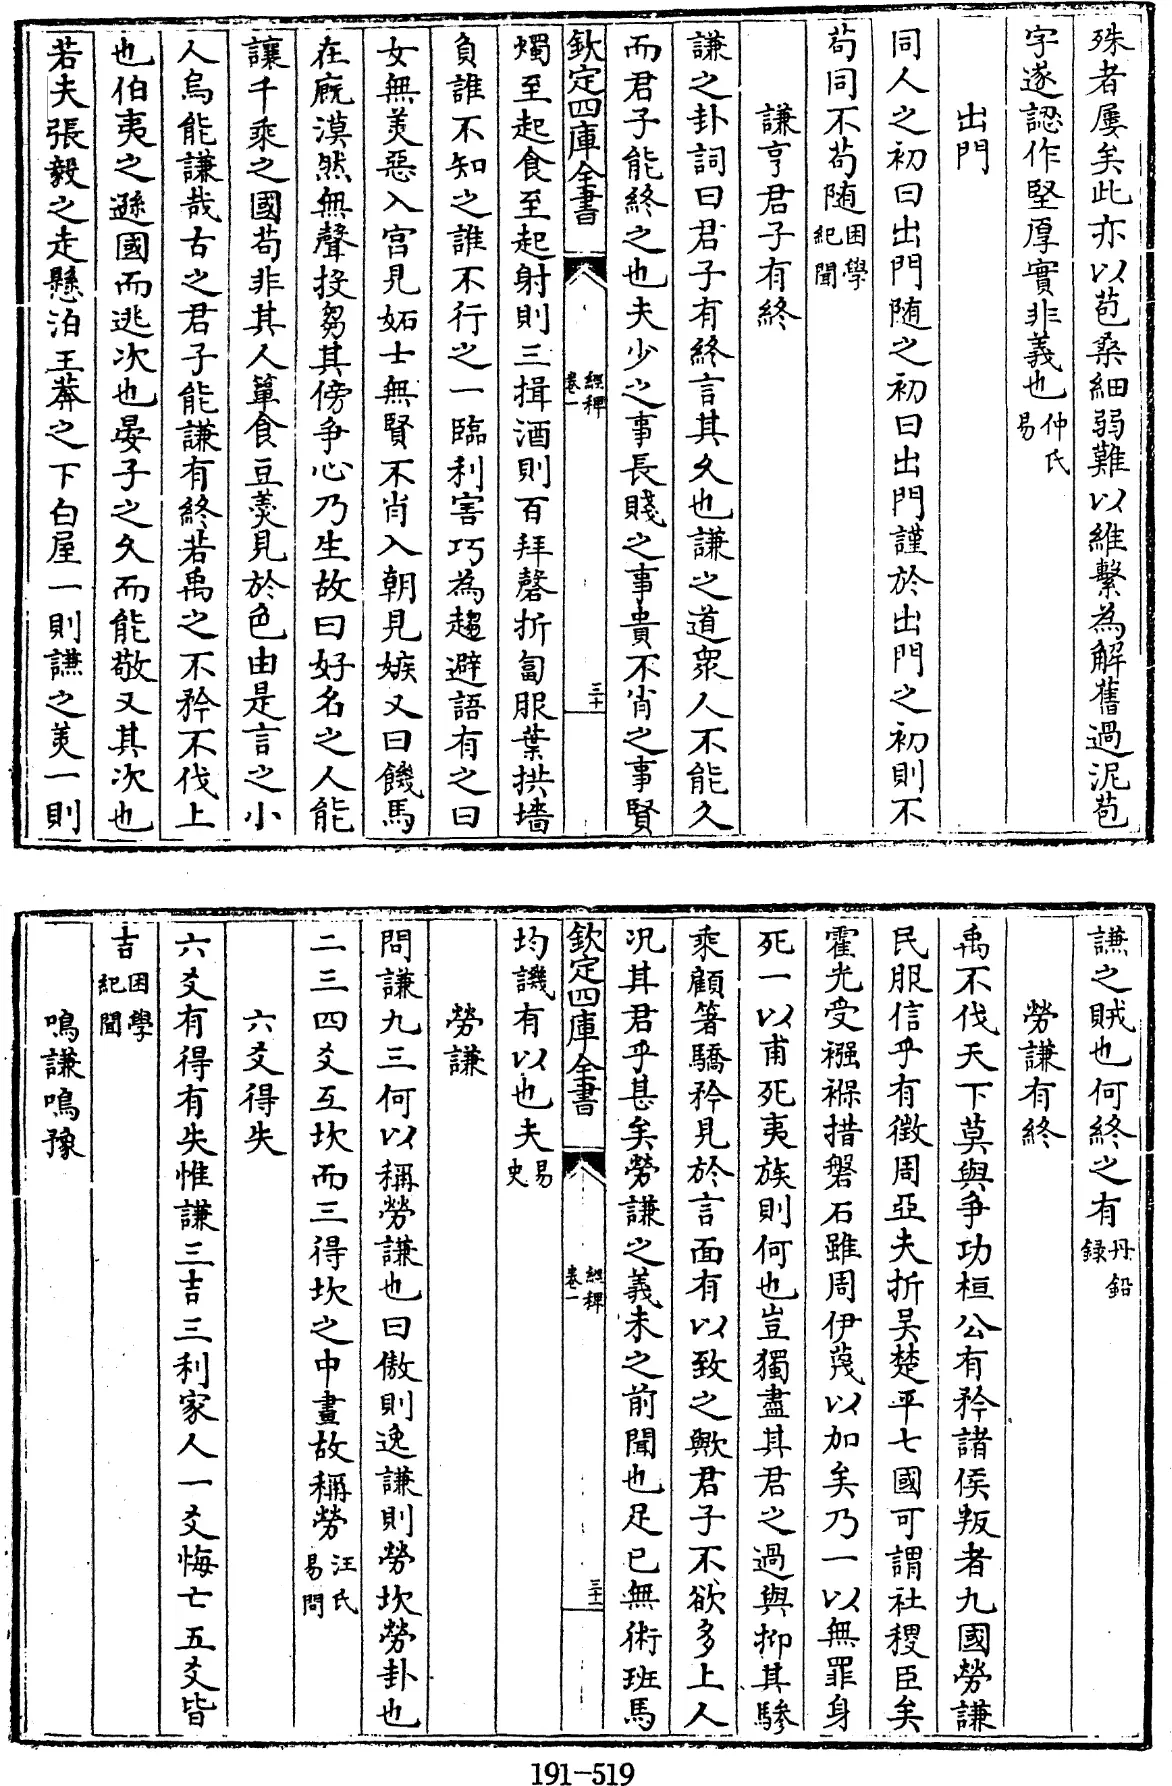 殊者屢矣此亦以苞桑細弱難以維繫為解舊過泥苞
字遂認作堅厚實非義也仲氏易
出門
同人之初曰出門随之初曰出門謹於出門之初則不
苟同不苟随困學紀聞
謙亨君子有終
謙之卦詞曰君子有終言其久也謙之道衆人不能久
而君子能終之也夫少之事長賤之事貴不肖之事賢
欽定四庫全書
經稗
卷一
三十
燭至起食至起射則三揖酒則百拜磬折匐服葉拱墻
負誰不知之誰不行之一臨利害巧為趨避語有之曰
女無美惡入宫見妬士無賢不肖入朝見嫉又曰饑馬
在廐漠然無聲投芻其傍争心乃生故曰好名之人能
讓千乘之國苟非其人簞食豆羮見於色由是言之小
人烏能謙哉古之君子能謙有終若禹之不矜不伐上
也伯夷之遜國而逃次也晏子之久而能敬又其次也
若夫張毅之走懸泊王莽之下白屋一則謙之美一則
謙之賊也何終之有丹鉛録
勞謙有終
禹不伐天下莫與争功桓公有矜諸侯叛者九國勞謙
民服信乎有徵周亞夫折吴楚平七國可謂社稷臣矣
霍光受襁褓措磐石雖周伊蔑以加矣乃一以無罪身
死一以甫死夷族則何也豈獨盡其君之過與抑其驂
乘顧箸驕矜見於言面有以致之歟君子不欲多上人
况其君乎甚矣勞謙之義未之前聞也足已無術班馬
欽定四庫全書
經稗
卷一
三十一
均譏有以也夫易史
勞謙
問謙九三何以稱勞謙也曰傲則逸謙則勞坎勞卦也
二三四爻互坎而三得坎之中畫故稱勞汪氏易問
六爻得失
六爻有得有失惟謙三吉三利家人一爻悔亡五爻皆
吉困學紀聞
鳴謙鳴豫
191-519